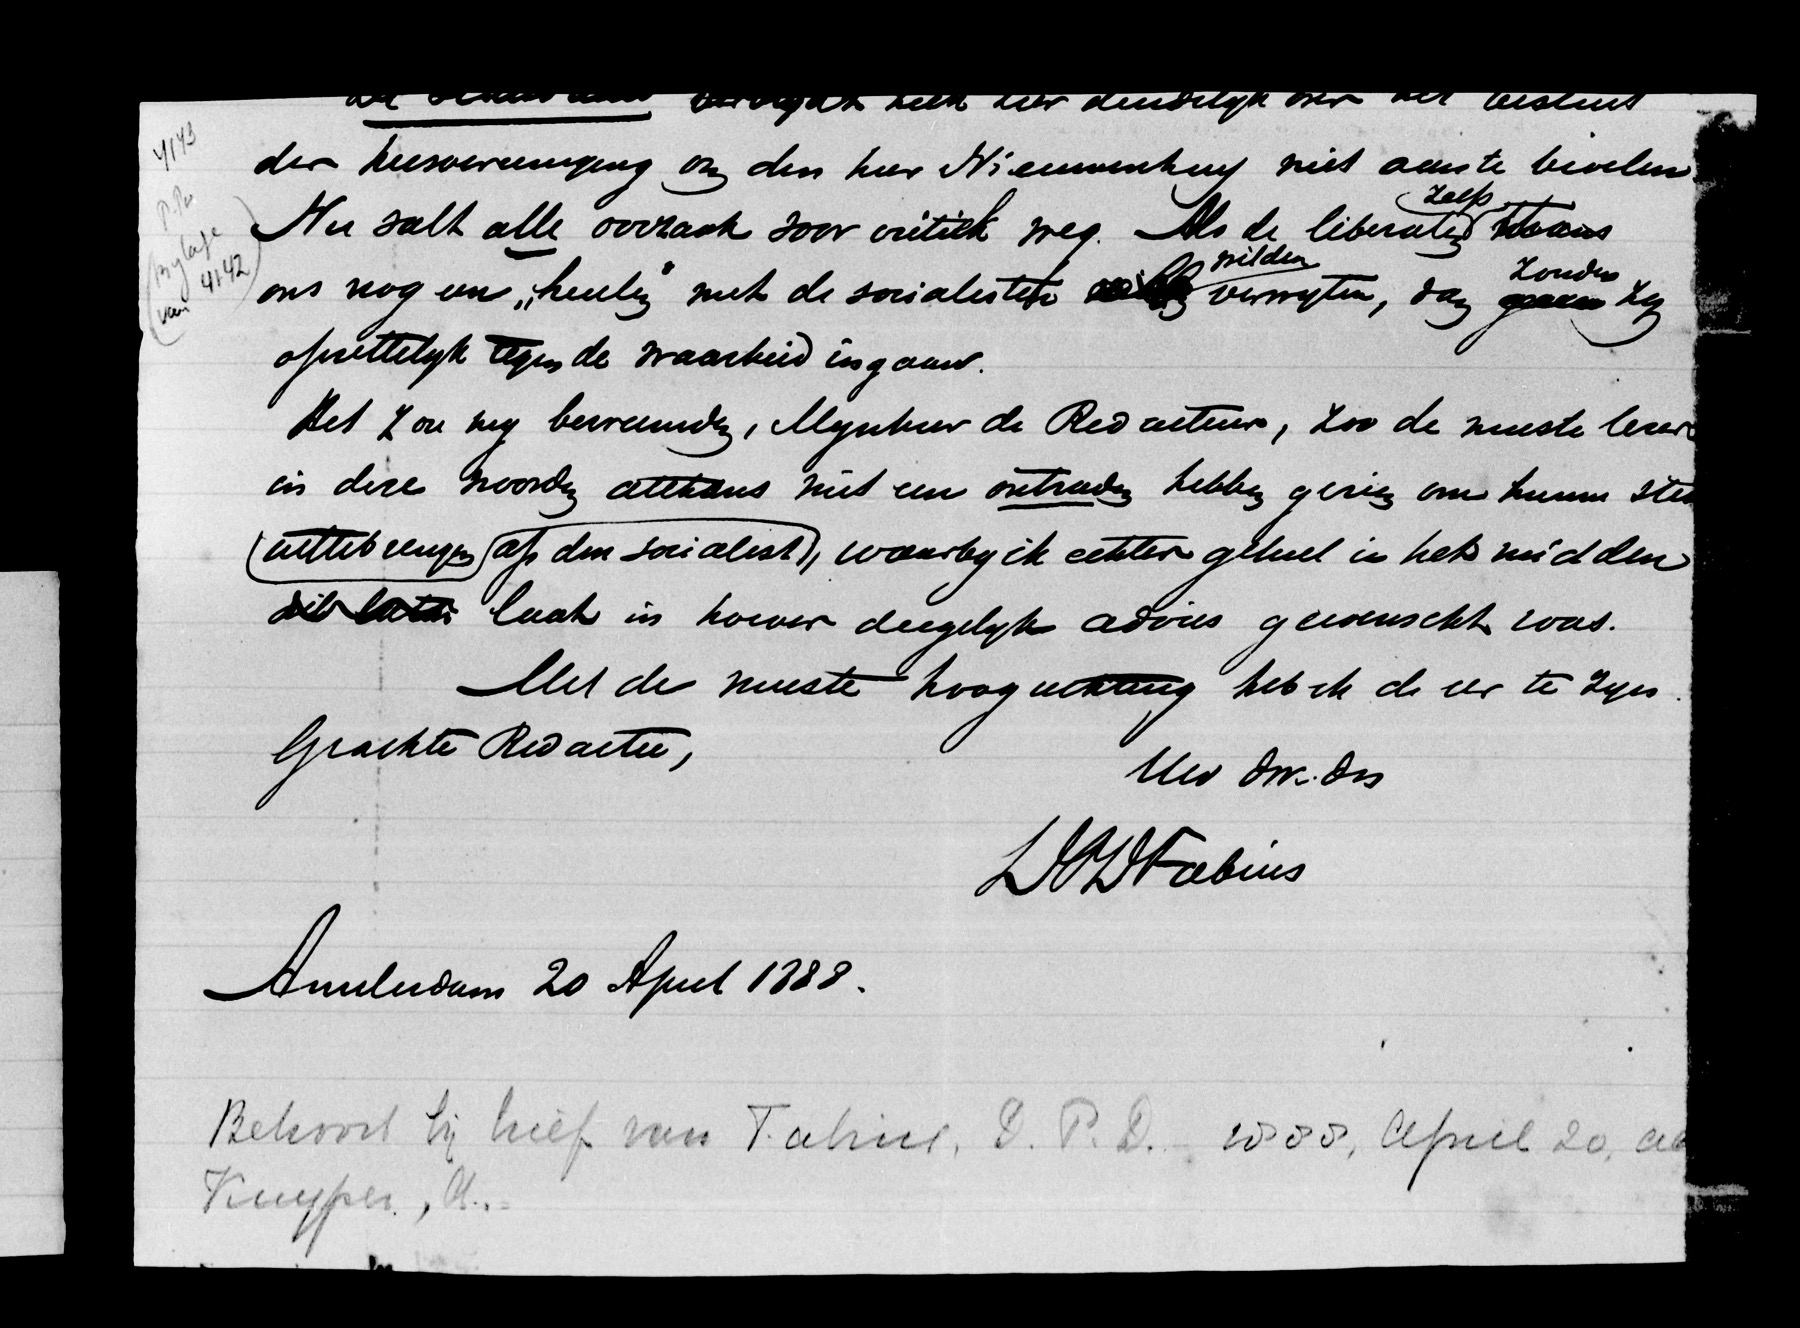 4143
P.Pa
(Bijlage
van 4142)
hier duidelijk over het besluit
der kiesvereeniging om den heer Nieuwenhuis niet aan te bevelen
Nu valt alle oorzaak voor critiek weg. Als de liberalen zelfs thans
ons nog een „heulen" met de socialisten wilden verwijten, dan zouden zij
opzettelijk tegen de waarheid ingaan.
Het zou mij bevreemden, Mijnheer de Redacteur, zoo de meeste lezers
in deze woorden althans niet een ontraden hebben gezien om hunne stem
uittebrengen op den socialist, waarbij ik echter geheel in het midden
laat in hoever dergelijk advies gewenscht was.
Met de meeste hoogachting heb ik de eer te zijn
Geachte Redactie,
Uw dw. dr
DPDFabius
Amsterdam 20 April 1888.
Behoort bij brief van Fabius, D. P. D. - 1888, April 20, aan
Kuyper, A.